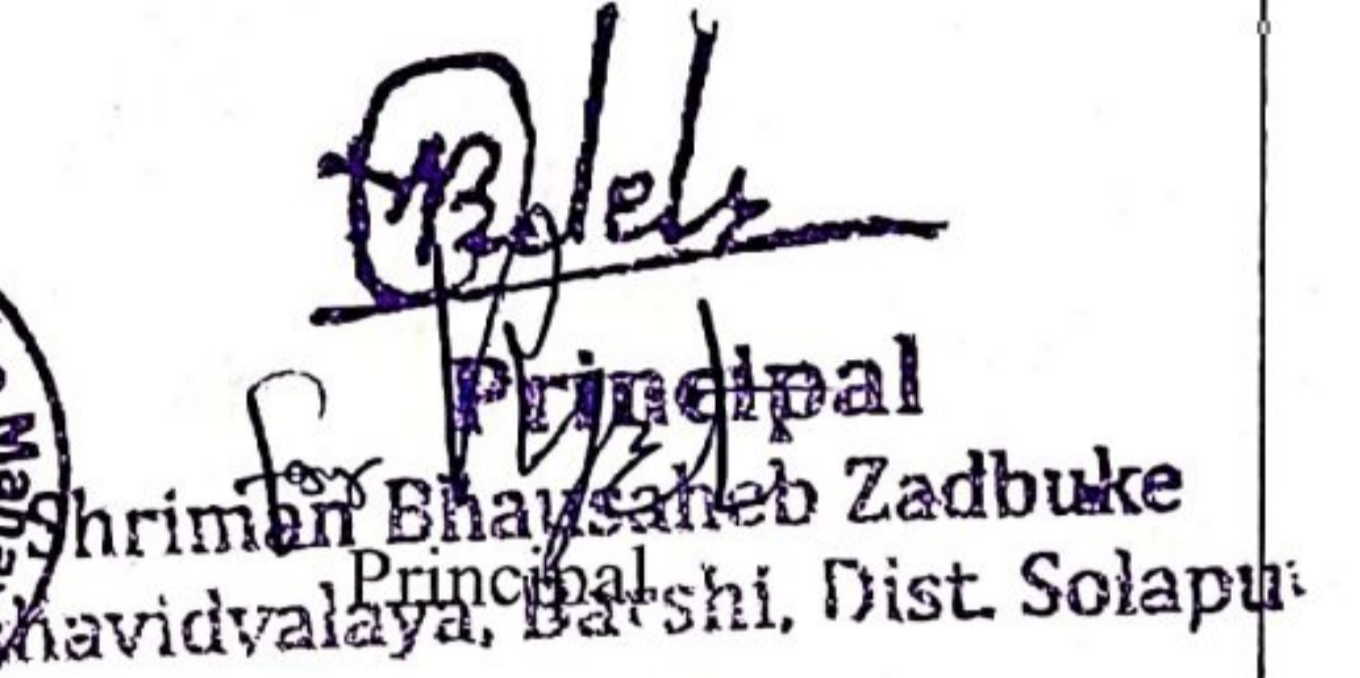 Principal
for
Shriman Bhausaheb Zadbuke
Principal
havidyalaya, Barshi, Dist. Solapu